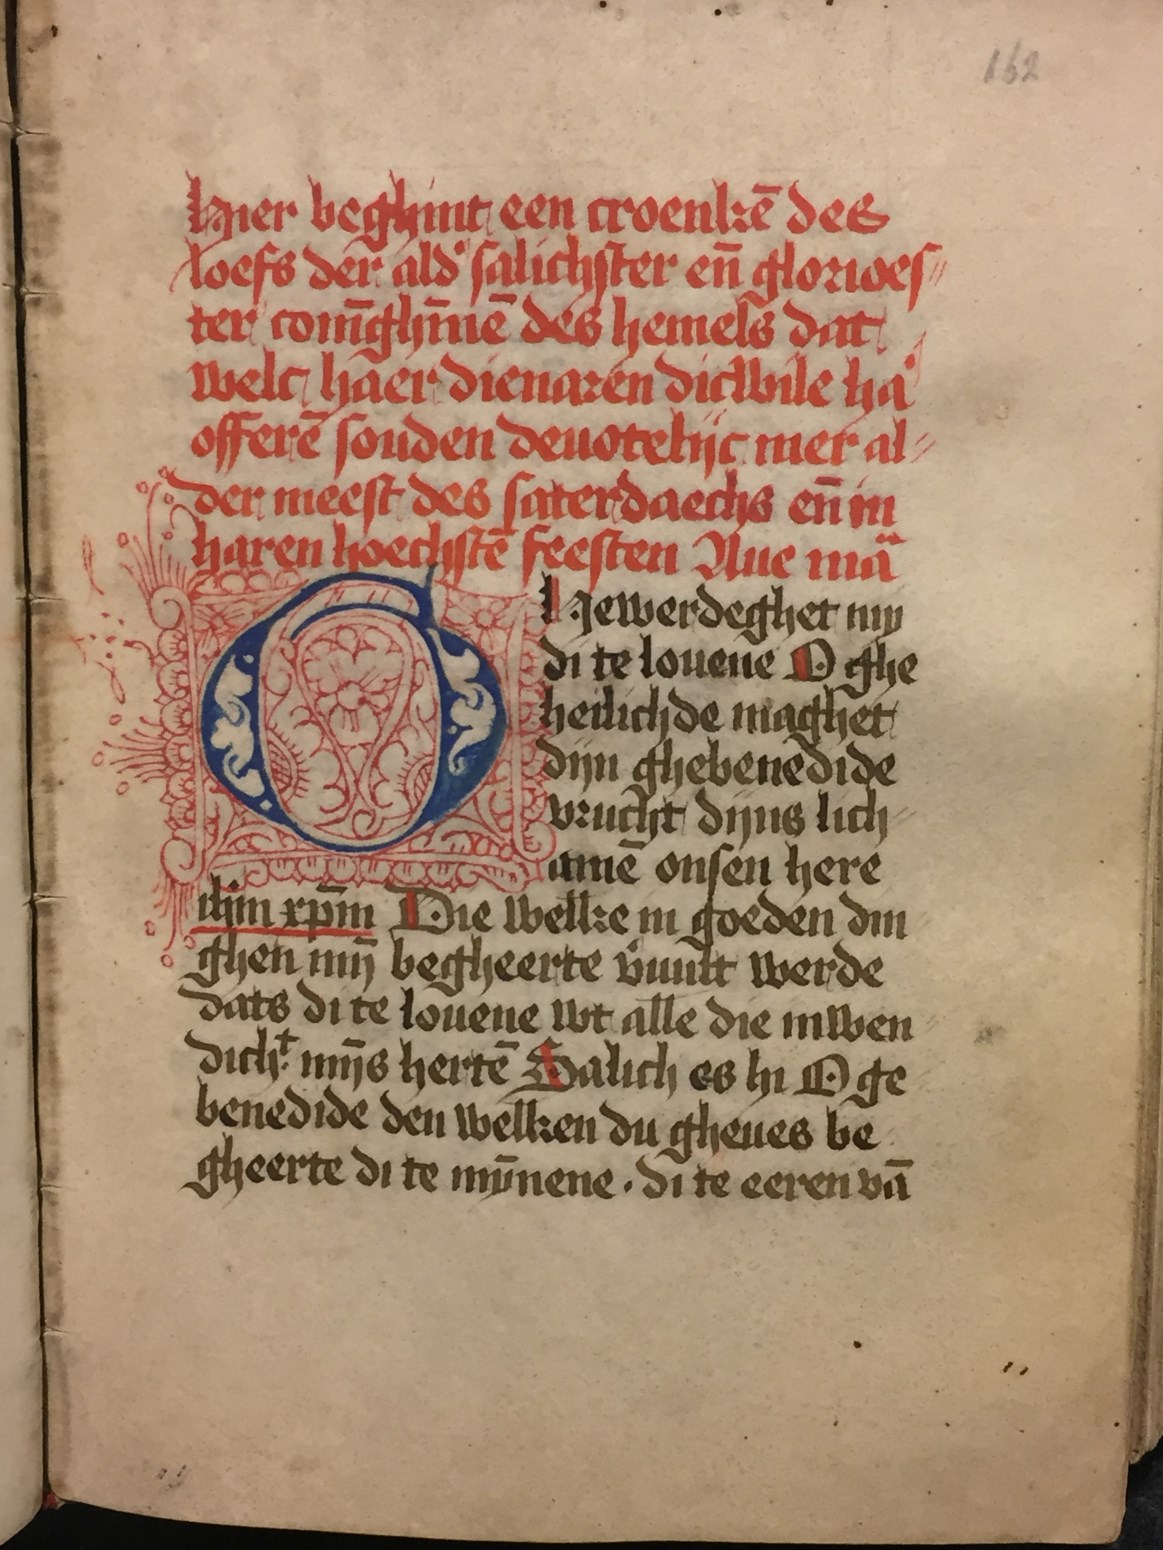 162
Hier beghint een croenkē des
loefs der ald' salichster en̄ glorioes
ter coni̅ghi̅nē des hemels dat
welc haer dienaren dicwile ha'
offerē souden deuotelijc mer al
der meest des saterdaechs en̄ in
haren hoechstē feesten Aue mā
O Ghewerdeghet my
di te louene O ghe
heilichde maghet
dijn ghebenedide
vrucht dijns lich
amē onsen here
ihm xp̄m Die welke in goeden din
ghen mȳ begheerte v'uult werde
dats di te louene wt alle die inwen
dich't mȳs hertē Salich es hi O ge
benedide den welken du gheues be
gheerte di te mȳnene . di te eeren vā